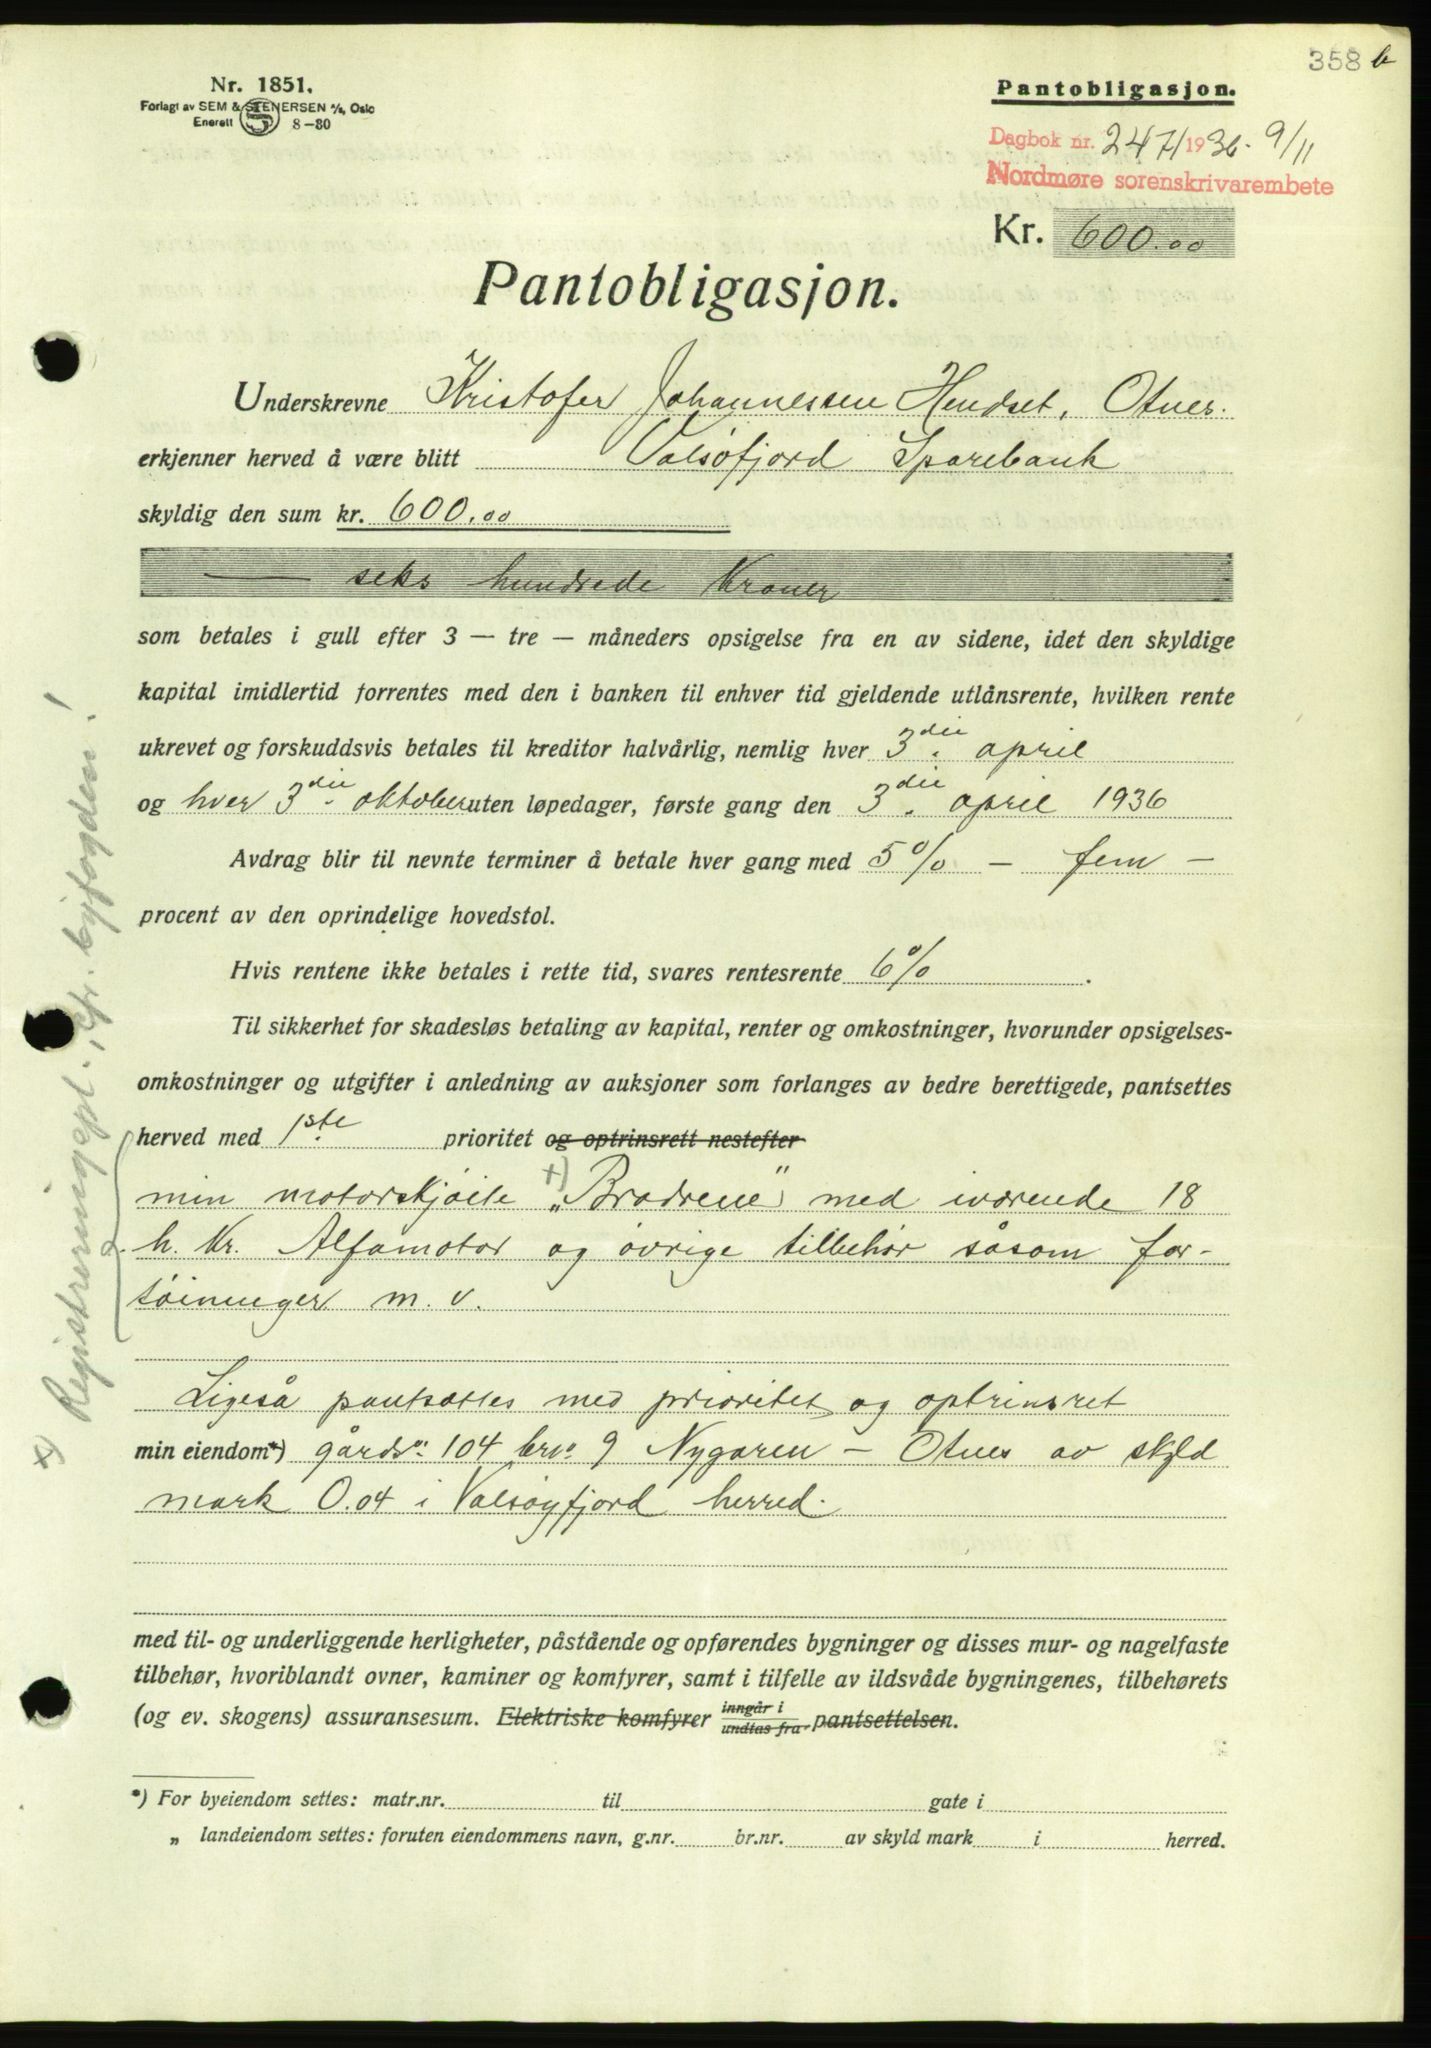 358 b
Nr. 1851.
Forlagt av SEM & STENERSEN A/S, Oslo
Enerett S 8-30
Pantobligasjon.
Dagbok nr. 2471 1936 - 9/11
Nordmøre sorenskrivarembete
Kr. 600.00
Pantobligasjon.
Underskrevne Kristofer Johannessen Hendset, Otnes.
erkjenner herved å være blitt Valsøfjord Sparebank
skyldig den sum kr. 600.00
— seks hundrede Kroner
som betales i gull efter 3 — tre — måneders opsigelse fra en av sidene, idet den skyldige
kapital imidlertid forrentes med den i banken til enhver tid gjeldende utlånsrente, hvilken rente
ukrevet og forskuddsvis betales til kreditor halvårlig, nemlig hver 3die. april
og hver 3die. oktober uten løpedager, første gang den 3die. april 1936
Avdrag blir til nevnte terminer å betale hver gang med 5% — fem —
procent av den oprindelige hovedstol.
Hvis rentene ikke betales i rette tid, svares rentesrente 6%.
Til sikkerhet for skadesløs betaling av kapital, renter og omkostninger, hvorunder opsigelses-
omkostninger og utgifter i anledning av auksjoner som forlanges av bedre berettigede, pantsettes
herved med 1ste prioritet og optrinsrett nestefter
min motorskjøite +) „Brødrene" med iværende 18
h. Kr. Alfamotor og øvrige tilbehør såsom for-
tøininger m. v.
Ligeså pantsættes med prioritet og optrinsret
min eiendom*) gårdsno: 104 brno. 9 Nygaren — Otnes av skyld
mark 0.04 i Valsøyfjord herred.
med til- og underliggende herligheter, påstående og opførendes bygninger og disses mur- og nagelfaste
tilbehør, hvoriblandt ovner, kaminer og komfyrer, samt i tilfelle av ildsvåde bygningenes, tilbehørets
(og ev. skogens) assuransesum. Elektriske komfyrer inngår i / undtas fra pantsettelsen.
*) For byeiendom settes: matr.nr. til gate i
„ landeiendom settes: foruten eiendommens navn, g.nr. br.nr. av skyld mark i herred.
+) Registreringspl., cfr. byfogden!